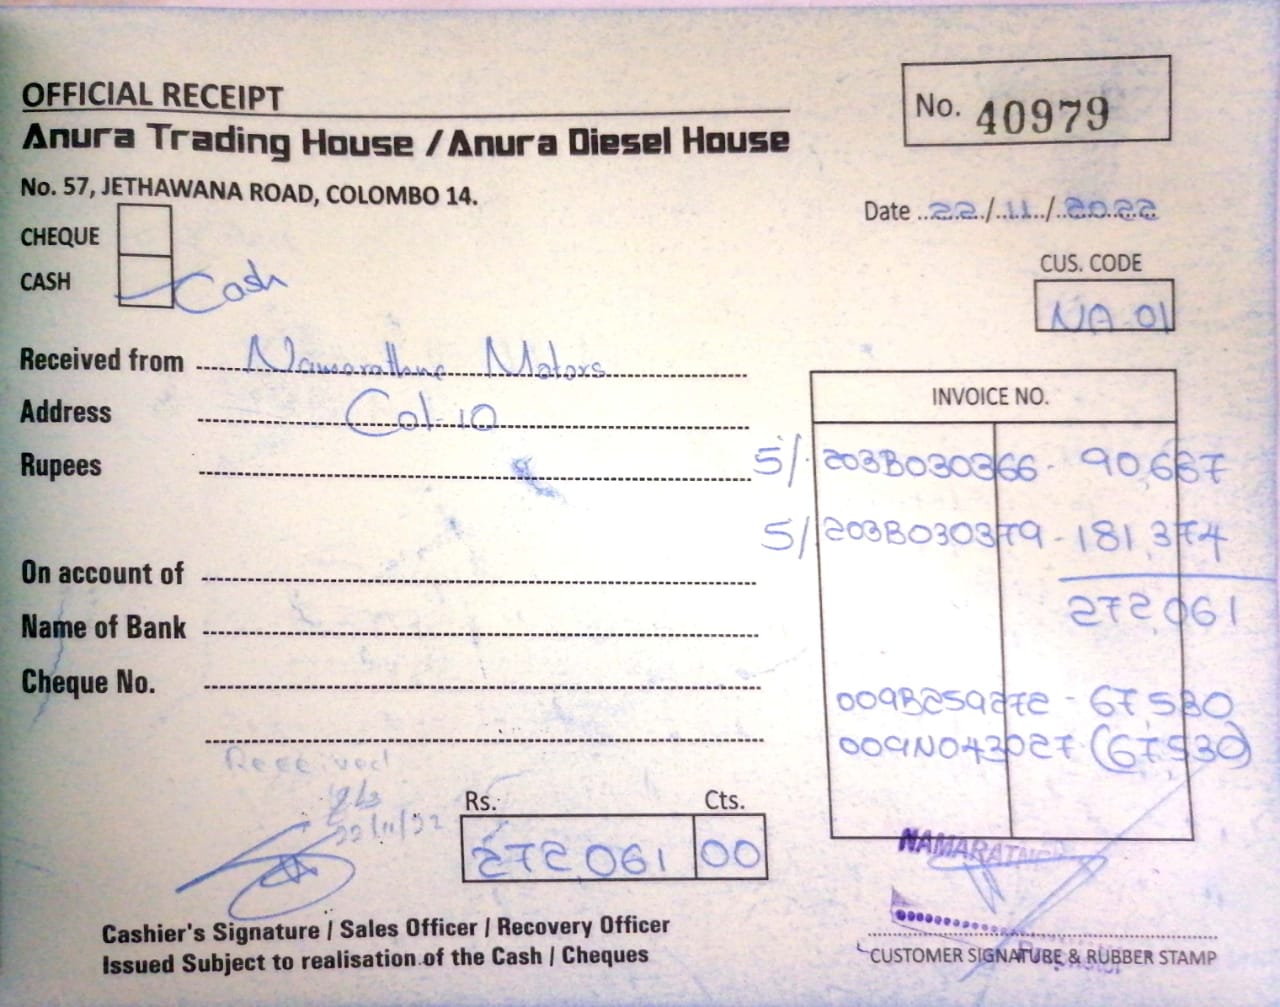 OFFICIAL RECEIPT
No. 40979
Anura Trading House / Anura Diesel House
No. 57, JETHAWANA ROAD, COLOMBO 14.
Date 22/11/2022
CHEQUE
CASH Cash
CUS. CODE
NA 01
Received from Namarathne Motors
Address Col-10
Rupees
On account of
Name of Bank
Cheque No.
INVOICE NO.
5/ 203B030366 - 90,687
5/ 203B030379 - 181,374
272,061
009B259272 - 67,530
009N043027 (67,530)
Received
22/11/22
Rs. Cts.
272,061 00
NAMARATNE
Cashier's Signature / Sales Officer / Recovery Officer
Issued Subject to realisation of the Cash / Cheques
CUSTOMER SIGNATURE & RUBBER STAMP